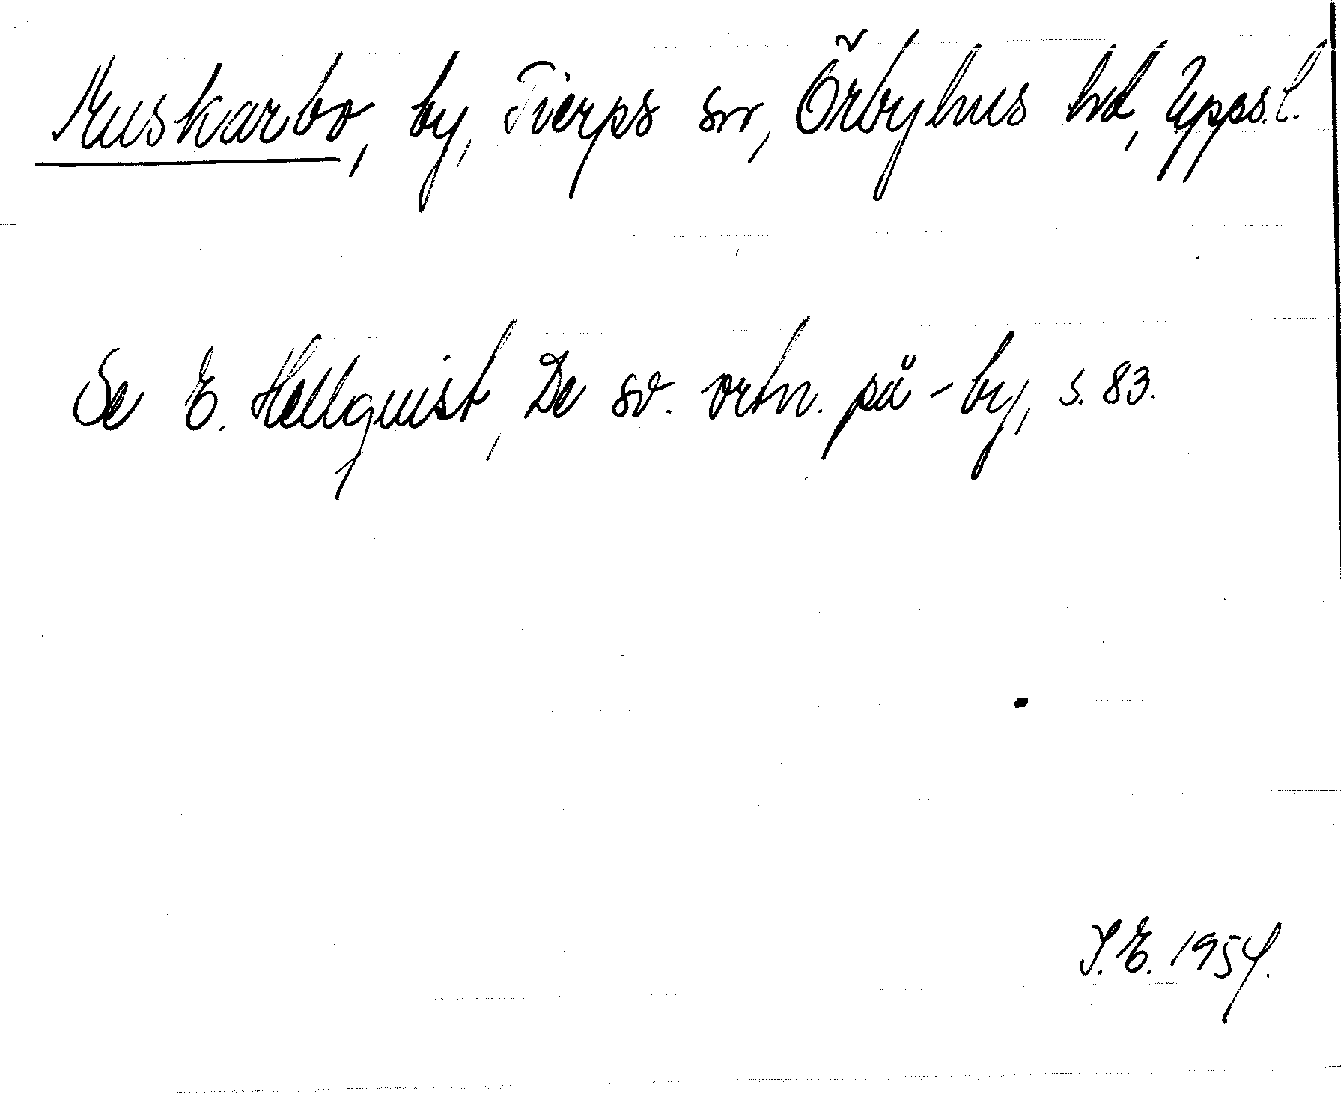 Muskarbo, by, Tierps sn, Örbyhus hd, Upps.l.
Se E. Hellquist, De sv. ortn. på -by, s. 83.
I.E. 1954.